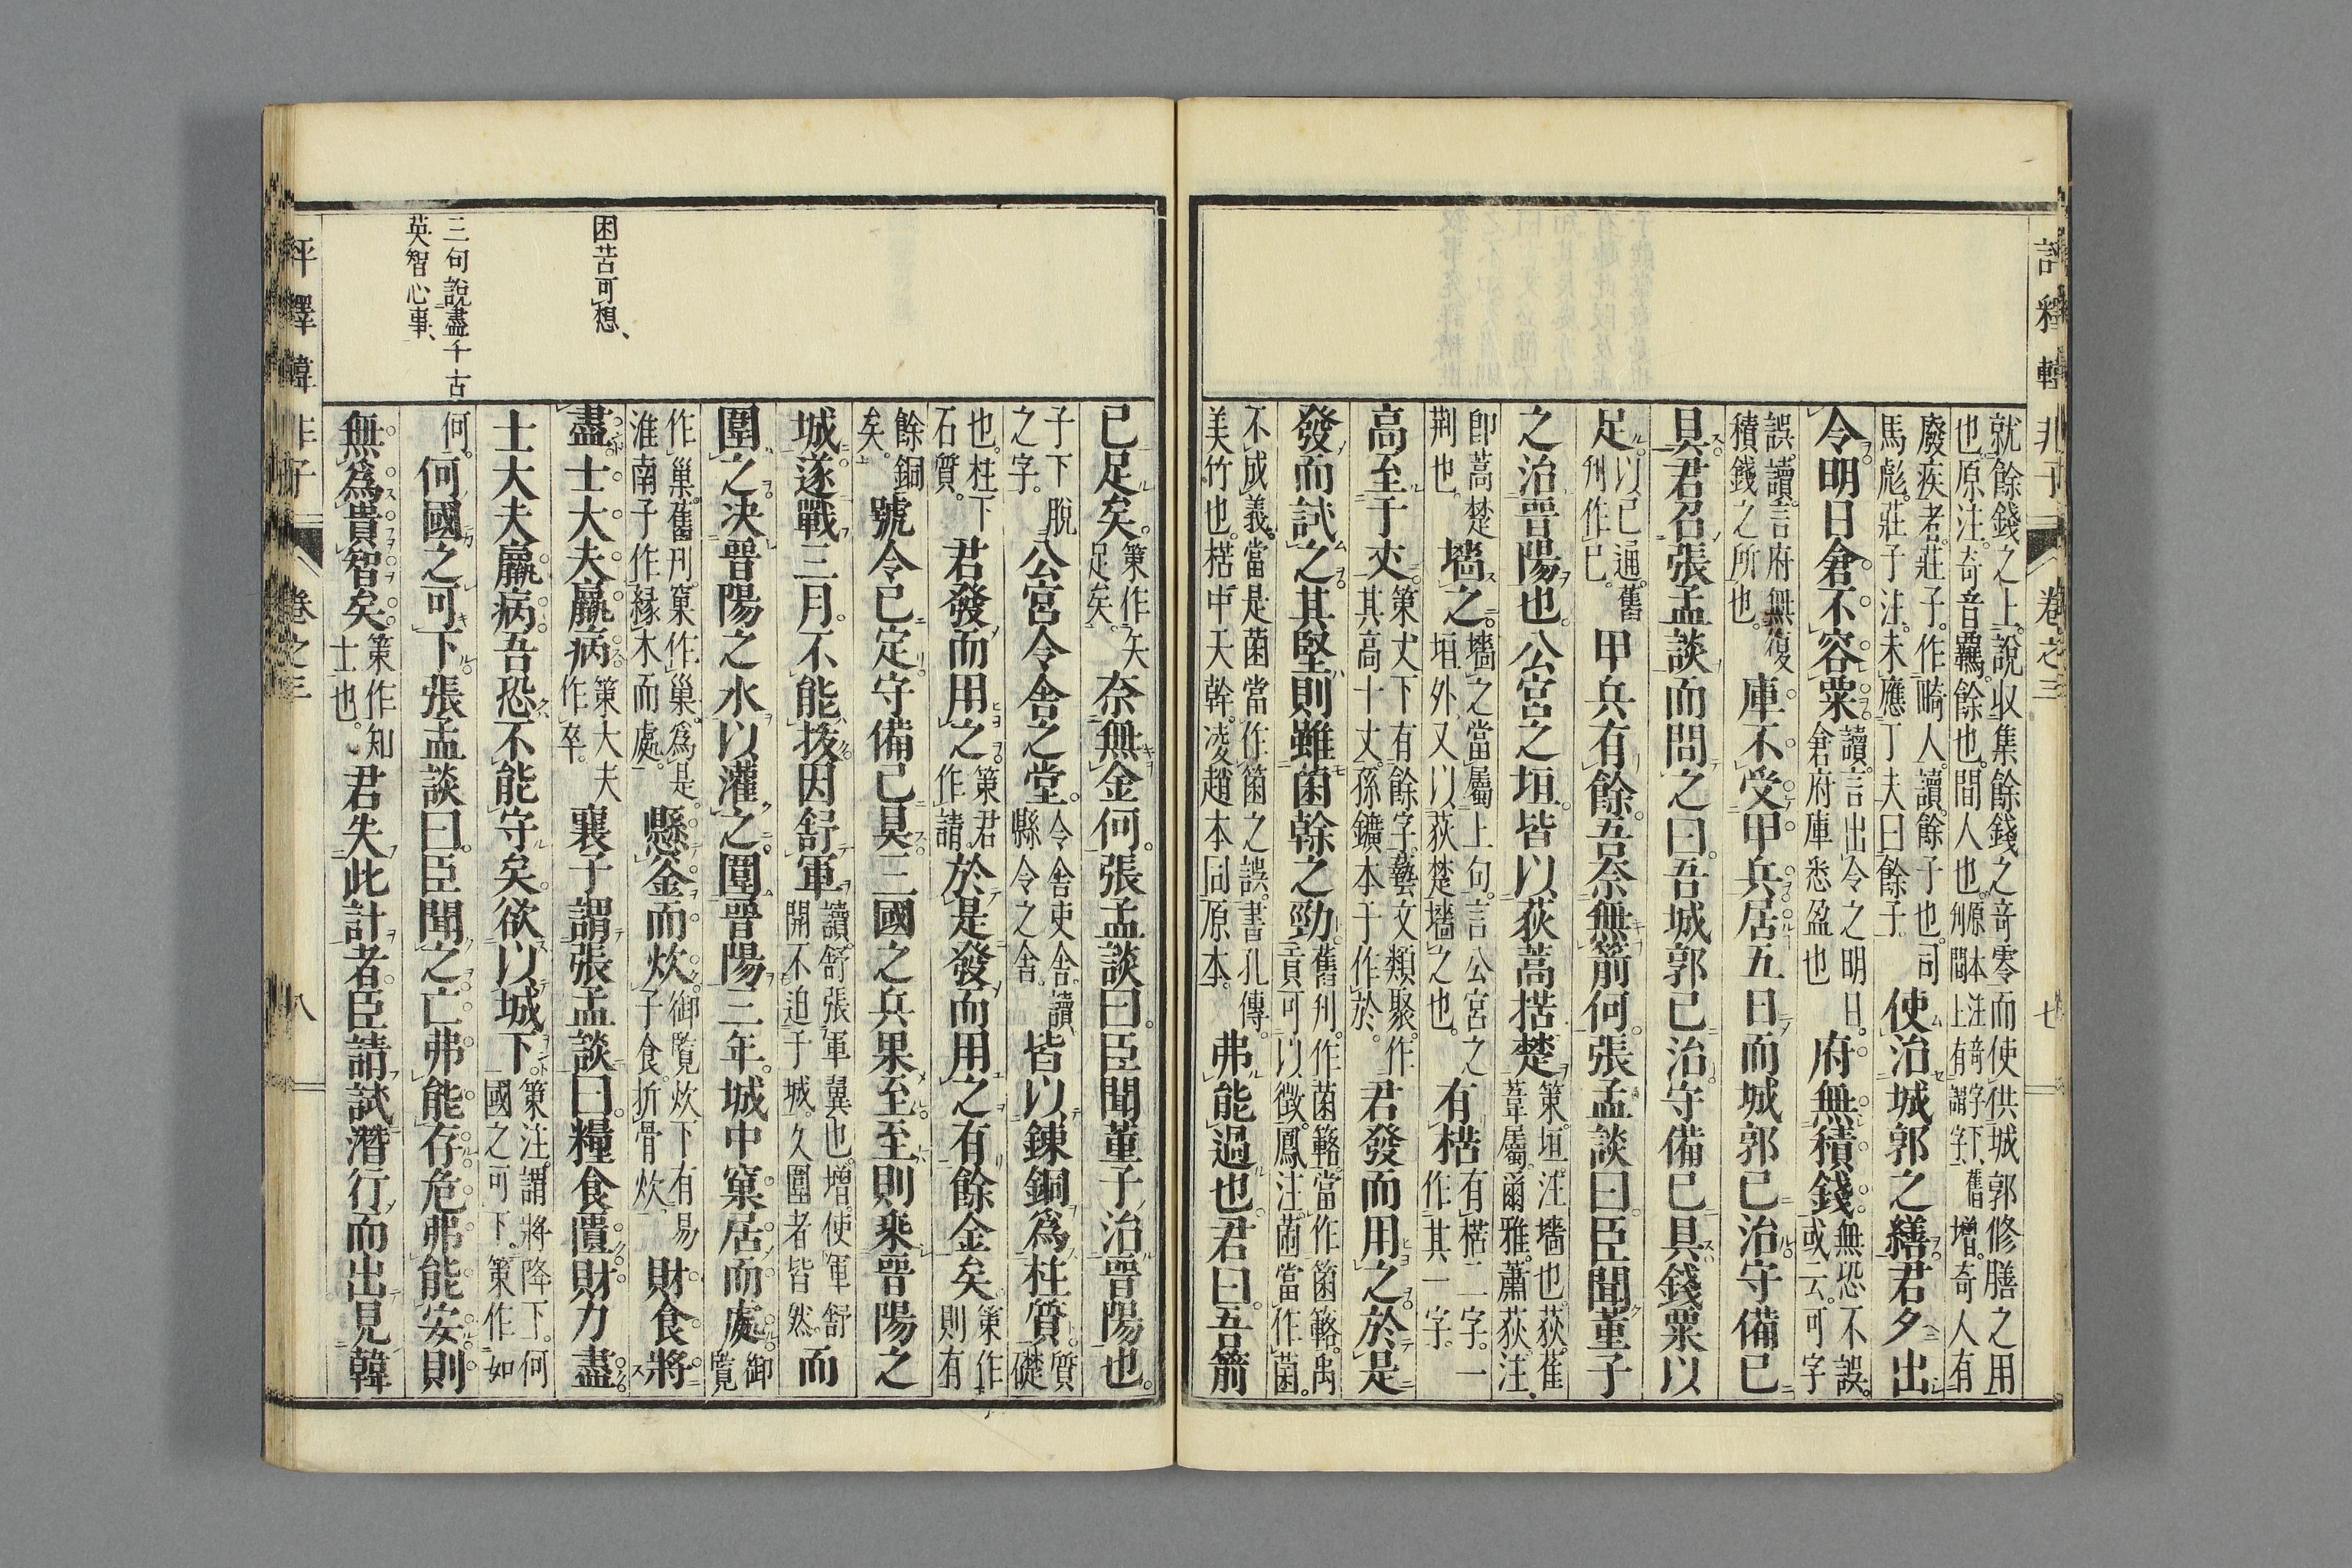 評釋韓非子 卷之三 七
就餘錢之上。說收集餘錢之奇零而使供城郭修膳之用
也。原注。奇音羈。餘也。間人也。原本注奇字下、舊增。奇人有
廢疾者。莊子。作畸人。讀。餘子也。司
馬彪。莊子注。未應丁夫曰餘子。使治城郭之繕君夕出
令明日倉不容粟讀。言出令之明日。倉府庫悉盈也府無積錢無恐不誤。或云。可字
誤。讀。言府無復積錢之所也。庫不受甲兵居五日而城郭已治守備已
具君召張孟談而問之曰吾城郭已治守備已具錢粟以
足。以已通。舊刑作已。甲兵有餘吾奈無箭何張孟談曰臣聞董子
之治晉陽也公宮之垣皆以荻蒿楛楚策。垣。注墻也。荻。萑葦屬。爾雅。蕭荻。注。
卽蒿楚荆也。墻之。墻之當屬上句。言公宮之垣外、又以荻楚墻之也。有楛有楛二字。一作其一字。
高至于丈策丈下有餘字。藝文類聚。作其高十丈。孫鑛本于作於。君發而用之於是
發而試之其堅則雖菌幹之勁舊刑。作菌簵。當作箘簵。禹貢可以徵。鳳注。菌當作菌。
不成義。當是菌當作箘之誤。書孔傳。美竹也。楛中天幹。凌趙本同原本。弗能過也君曰吾箭
已足矣。策作矢足矣。奈無金何。張孟談曰。臣聞董子治晉陽也。
子下脫之字。公宮令舍之堂。令舍吏舍。讀、縣令之舍。皆以鍊銅爲柱質。質礎
也。柱下石質。君發而用之策君作請。於是發而用之有餘金矣策作則有
餘銅矣。號令已定守備已具三國之兵果至至則乘晉陽之
城遂戰三月不能拔因舒軍讀。舒張軍翼也。增。使軍舒開不迫于城。久圍者皆然。而
圍之決晉陽之水以灌之。圍晉陽三年。城中窠居而處御覽
作巢。舊刑。窠作巢。爲是。淮南子作緣木而處。懸釜而炊御覽炊下有易子食。折骨炊、財食將
盡。士大夫羸病策大夫作卒。襄子謂張孟談曰糧食匱財力盡
士大夫羸病吾恐不能守矣欲以城下。策注。謂將降下。何國之可下。策作如
何。何國之可下張孟談曰。臣聞之亡弗能存危弗能安則
無爲貴智矣。策作知士也。君失此計者。臣請試潛行而出見韓
困苦可想、
三句說盡千古
英智心事、
評釋韓非子 卷之三 八